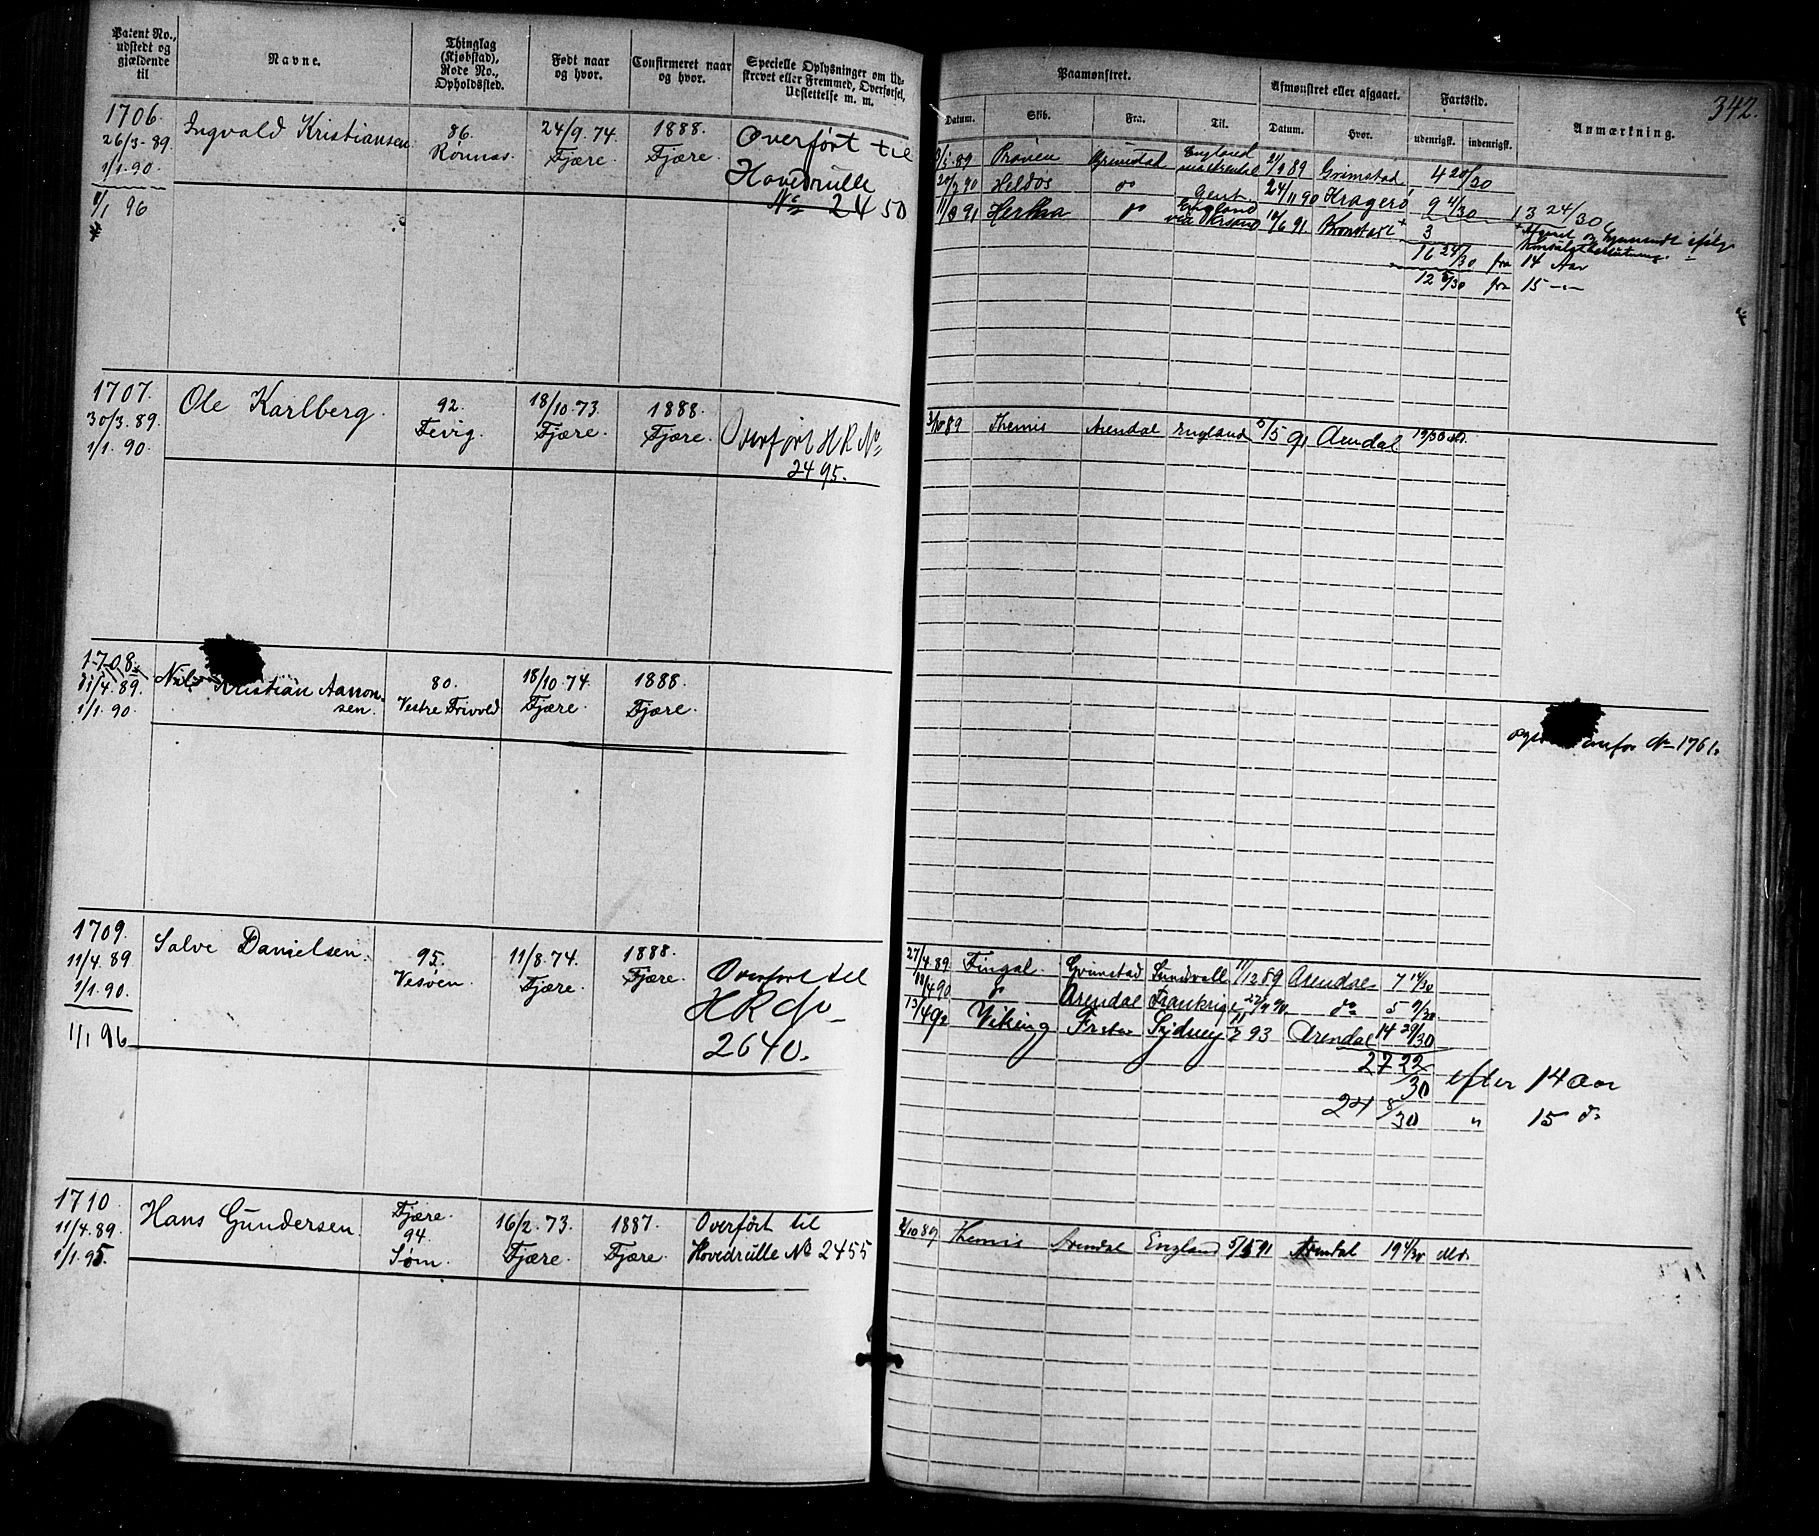 342.
Patent No., udstedt og gjældende til
Navne.
Thinglag (Kjøbstad), Rode No., Opholdssted.
Født naar og hvor.
Confirmeret naar og hvor.
Specielle Oplysninger om Udskrevet eller Fremmed, Overførsel, Udslettelse m. m.
Paamønstret.
Afmønstret eller afgaaet.
Fartstid.
Anmærkning.
Datum.
Skib.
Fra.
Til.
Datum.
Hvor.
udenrigst.
indenrigst.
1706.
26/3-89.
1/1.90.
1/1 96
Ingvald Kristiansen
86.
Rønnas.
24/9.74.
Fjære.
1888.
Fjære.
Overført til
Hovedrulle
No 2450
89 England 21/9 89 Grimstad 4 20/30
20/2 90 Heldos do Gent 24/11 90 Kragerø 9 4/30 13 24/30
91 Hertha do England 14/6 91 + 3
16 24/30 fra 14 Aar
12 5/30 fra 15 —
1707.
30/3.89.
1/1.90.
Ole Karlberg.
92.
Fevig.
18/10.73.
Fjære.
1888.
Fjære.
Overført HR No
2495.
3/10 89 Themis Arendal England 5/5 91 Arendal
1708.
1/4.89.
1/1.90.
Nils Kristian Aanon-
sen.
80.
Vestre Frivold
18/10.74.
Fjære.
1888.
Fjære.
anfør No 1761.
1709.
11/4.89
1/1.90.
1/1 96
Salve Danielsen.
95.
Vesøen.
11/8.74.
Fjære.
1888.
Fjære.
Overført til
HR No
2640.
27/4.89 Fingal. Grimstad Sundsvall 11/12 89 Arendal 7 14/30
18/4 90 do Arendal Frankrige 27/9 90. do 5 9/30
13/4 92 Viking Sydney 93 Arendal 14 29/30
27 22/30 efter 14 aar
24 8/30 " 15 do
1710.
11/4.89.
1/1.95.
Hans Gundersen.
Fjære.
94.
Søm.
16/2.73.
Fjære.
1887.
Fjære.
Overført til
Hovedrulle No 2455
2/10 89 Themis Arendal England 5/5 91 Arendal 19 4/30 Md.